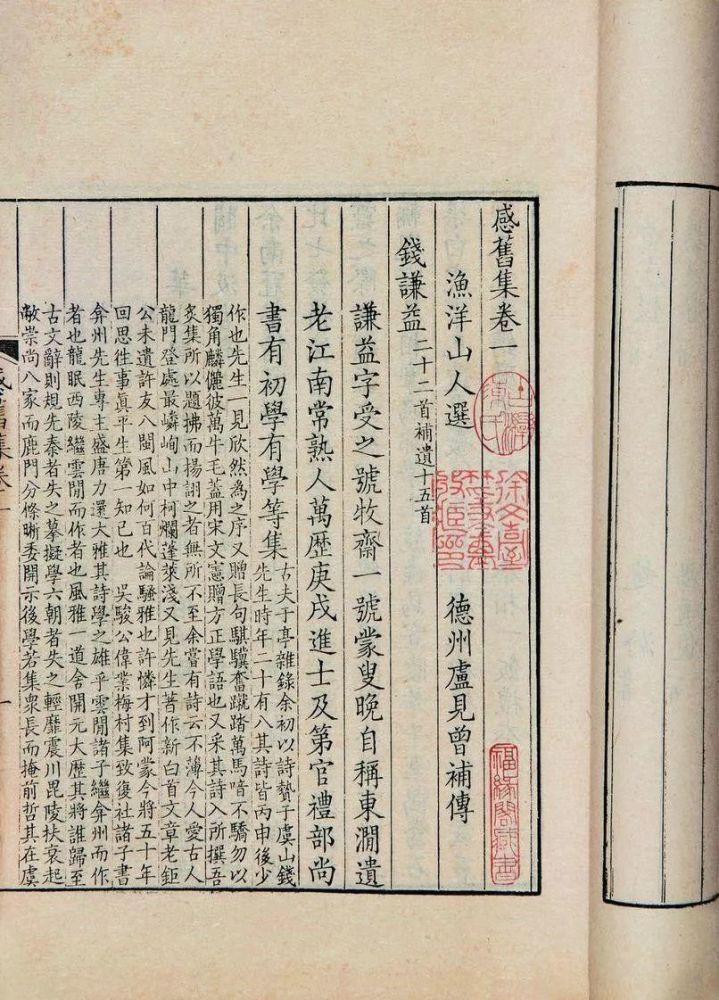 感舊集卷一
漁洋山人選　德州盧見曾補傳
錢謙益二十二首補遺十五首
謙益字受之號牧齋一號蒙叟晚自稱東澗遺
老江南常熟人萬歷庚戌進士及第官禮部尚
書有初學有學等集古夫于亭雜錄余初以詩贄于虞山錢
先生時年二十有八其詩皆丙申後少
作也先生一見欣然為之序又贈長句騏驥奮蹴踏萬馬喑不驕勿以
獨角麟儷彼萬牛毛蓋用宋文憲贈方正學語也又采其詩入所撰吾
炙集所以題拂而揚詡之者無所不至余嘗有詩云不薄今人愛古人
龍門登處最嶙峋山中柯爛蓬萊淺又見先生著作新白首文章老鉅
公未遺許友八閩風如何百代論騷雅也許憐才到阿蒙今將五十年
回思徃事真平生第一知己也　吳駿公偉業梅村集致復社諸子書
弇州先生專主盛唐力還大雅其詩學之雄乎雲閒諸子繼弇州而作
者也龍眠西陵繼雲閒而作者也風雅一道舍開元大歷其將誰歸至
古文辭則規先秦者失之摹擬學六朝者失之輕靡震川毘陵扶衰起
敝崇尚八家而鹿門分條晰委開示後學若集眾長而掩前哲其在虞
感舊集卷一
一
福緣閣藏書